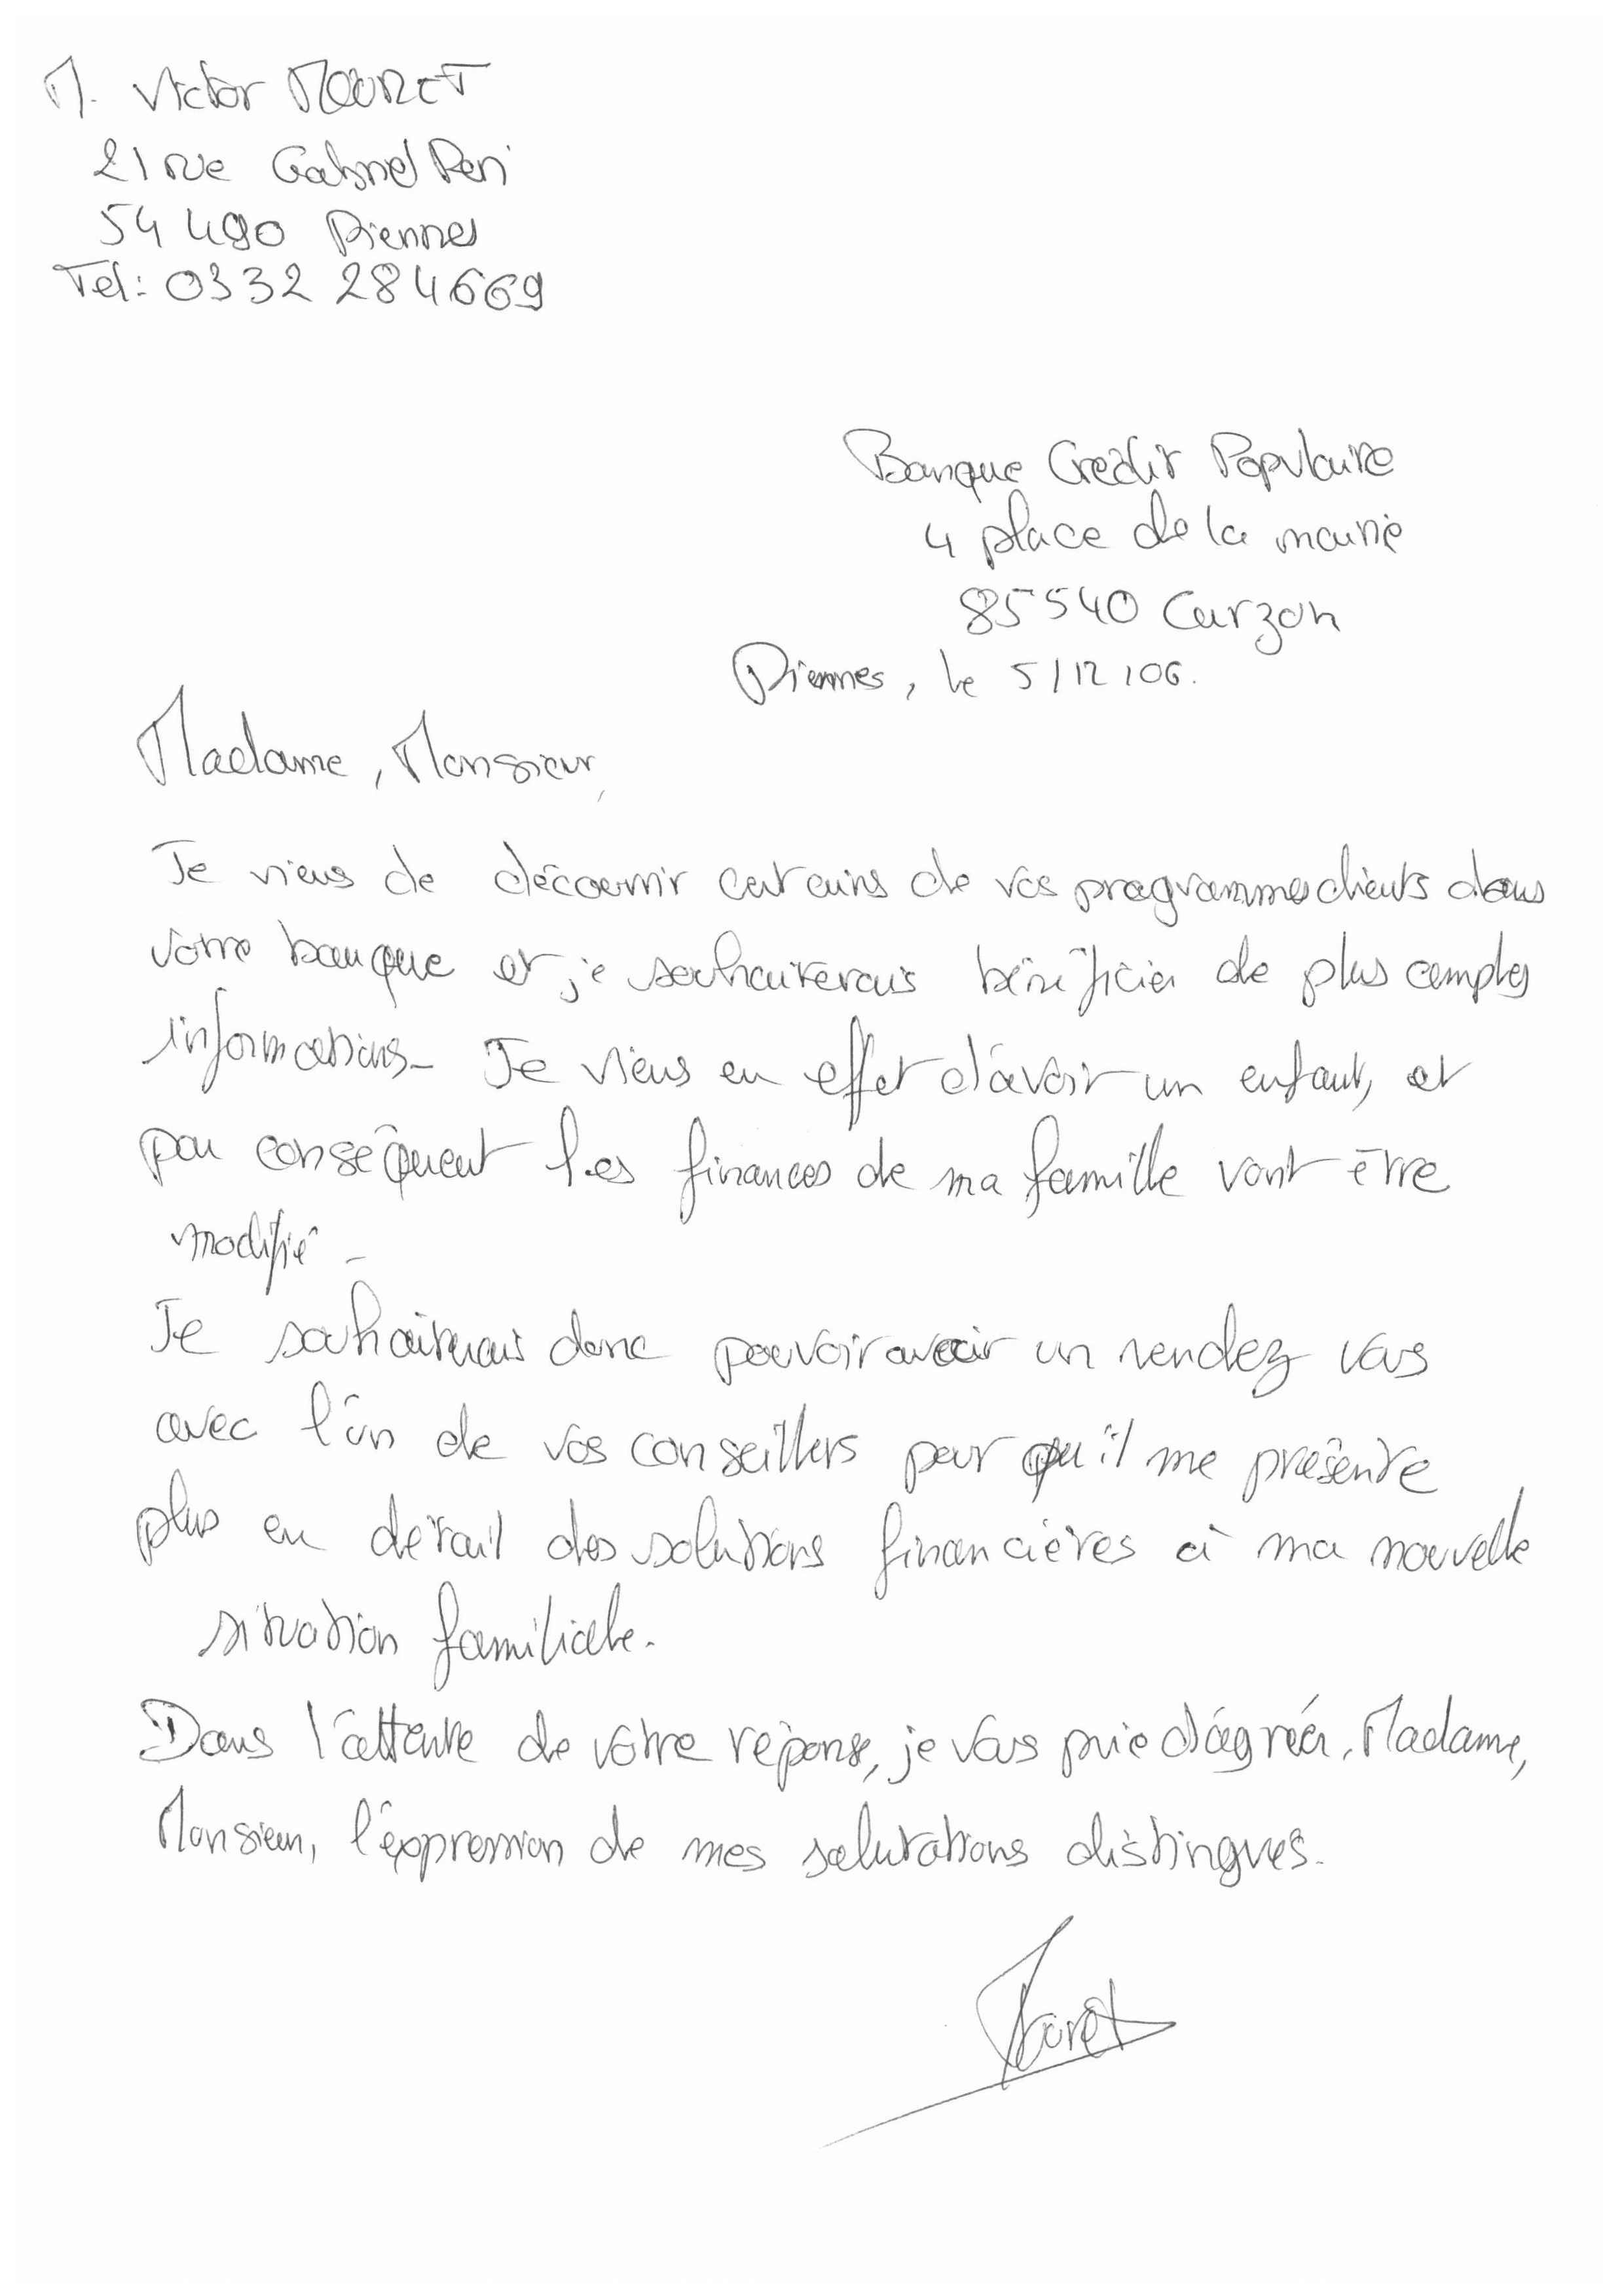 M. Victor MOURET
21 rue Gabriel Peri
54 490 Piennes
Tel: 0332 284669
Banque Crédit Populaire
4 place de la mairie
85540 Curzon
Piennes, le 5/12/06.
Madame, Monsieur,
Je viens de découvrir certains de vos programmes clients dans
votre banque et je souhaiterais bénéficier de plus amples
informations. Je viens en effet d'avoir un enfant, et
par conséquent les finances de ma famille vont être
modifié.
Je souhaiterais donc pouvoir avoir un rendez vous
avec l'un de vos conseillers pour qu'il me présente
plus en détail des solutions financières à ma nouvelle
situation familiale.
Dans l'attente de votre réponse, je vous prie d'agréer, Madame,
Monsieur, l'expression de mes salutations distingués.
Mouret